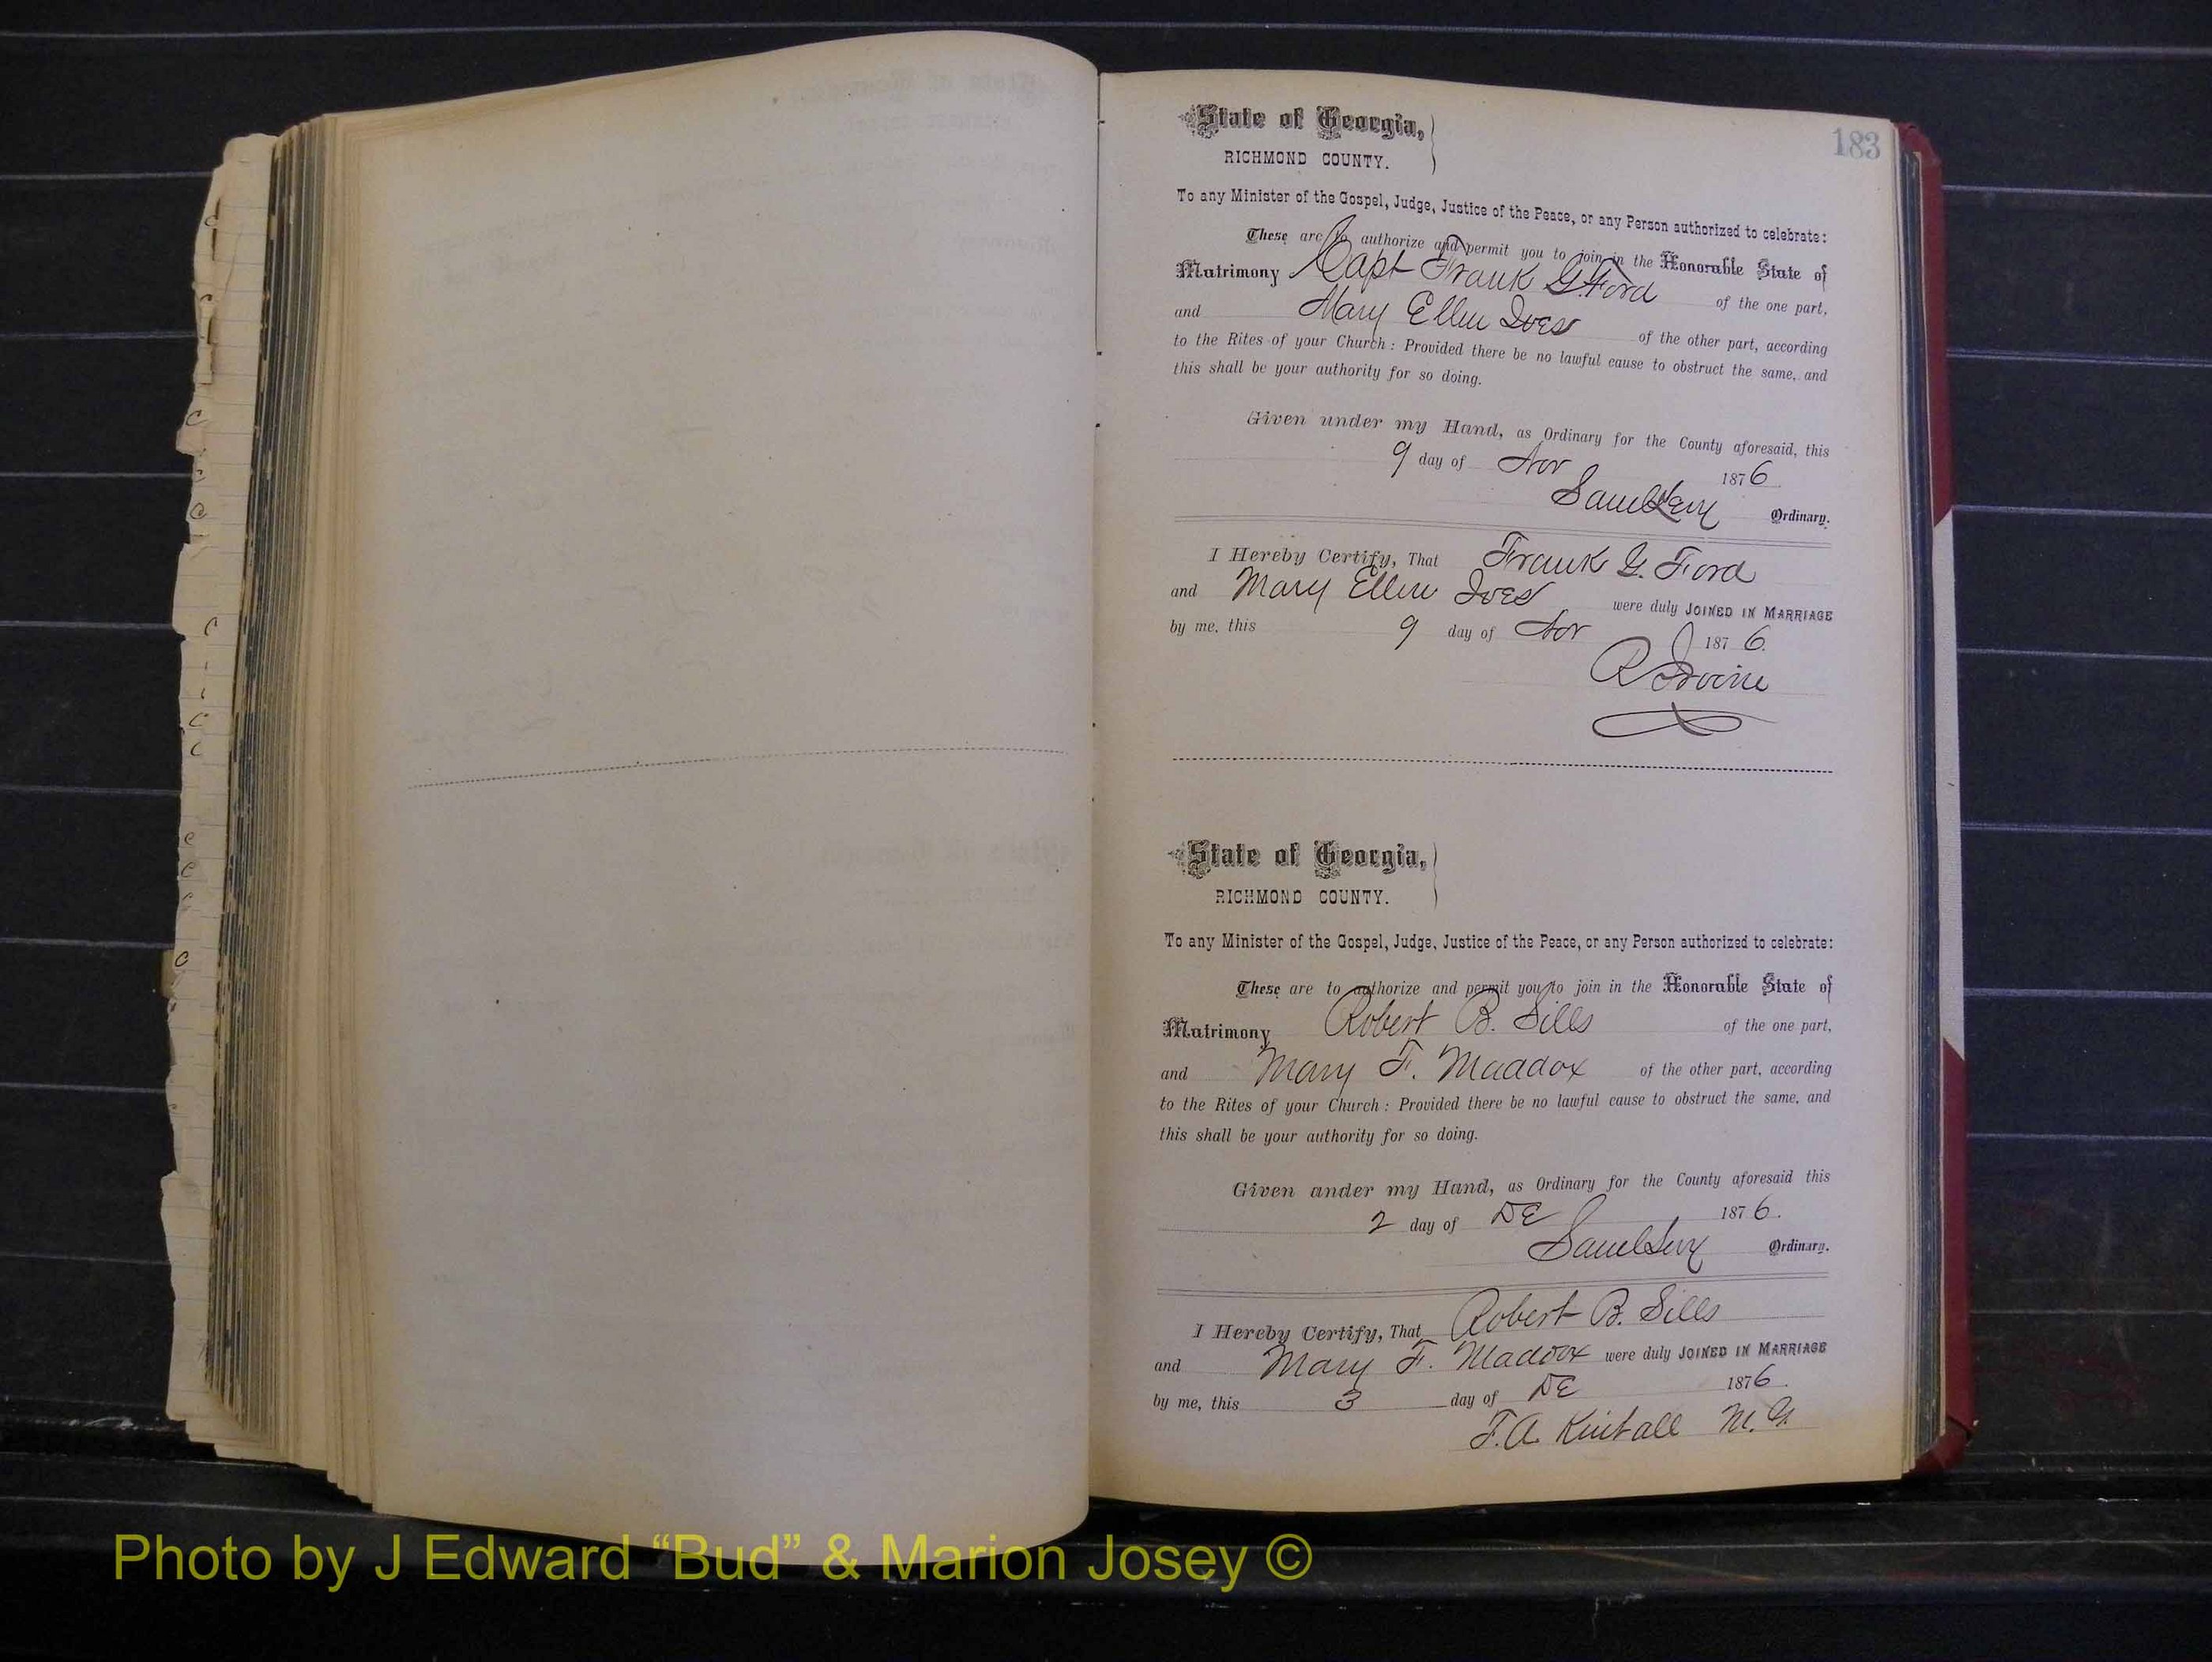 183
State of Georgia,
RICHMOND COUNTY.
To any Minister of the Gospel, Judge, Justice of the Peace, or any Person authorized to celebrate:
These are to authorize and permit you to join in the Honorable State of
Matrimony Capt Frank G. Ford of the one part,
and Mary Ellen Ives of the other part, according
to the Rites of your Church: Provided there be no lawful cause to obstruct the same, and
this shall be your authority for so doing.
Given under my Hand, as Ordinary for the County aforesaid, this
9 day of Nov 1876
Saml Levy Ordinary.
I Hereby Certify, That Frank G. Ford
and Mary Ellen Ives were duly JOINED IN MARRIAGE
by me, this 9 day of Nov 1876.
R Irvine
State of Georgia,
RICHMOND COUNTY.
To any Minister of the Gospel, Judge, Justice of the Peace, or any Person authorized to celebrate:
These are to authorize and permit you to join in the Honorable State of
Matrimony Robert B. Sills of the one part,
and Mary F. Maddox of the other part, according
to the Rites of your Church: Provided there be no lawful cause to obstruct the same, and
this shall be your authority for so doing.
Given under my Hand, as Ordinary for the County aforesaid this
2 day of DE 1876.
Saml Levy Ordinary.
I Hereby Certify, That Robert B. Sills
and Mary F. Maddox were duly JOINED IN MARRIAGE
by me, this 3 day of DE 1876.
F. A. Kimball M. G.
Photo by J Edward “Bud” & Marion Josey ©